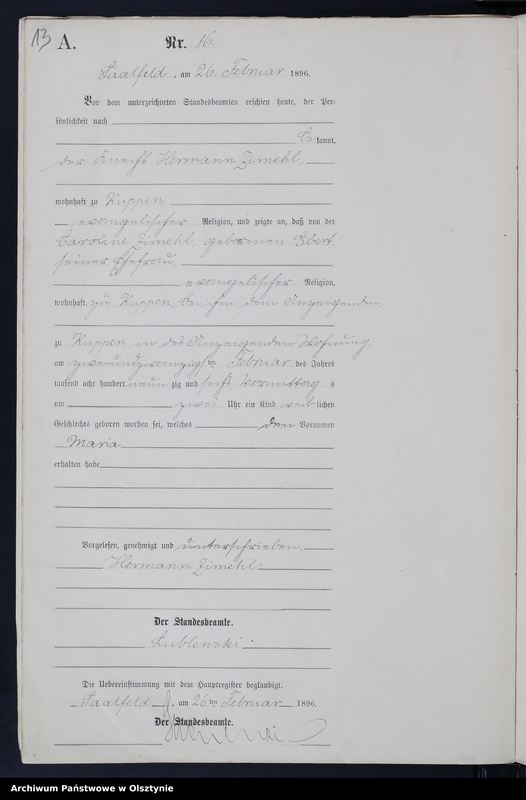 13 A. Nr. 16.
Saalfeld, am 26. Februar 1896.
Vor dem unterzeichneten Standesbeamten erschien heute, der Per-
sönlichkeit nach
be kannt,
der Knecht Hermann Zimehl,
wohnhaft zu Kuppen,
evangelischer Religion, und zeigte an, daß von der
Caroline Zimehl, geborenen Ebert,
seiner Ehefrau,
evangelischer Religion,
wohnhaft zu Kuppen bei ihm, dem Anzeigenden,
zu Kuppen in des Anzeigenden Wohnung,
am zweiundzwanzigsten Februar des Jahres
tausend acht hundert neun zig und sechs, Vormittag s
um zwei Uhr ein Kind weib lichen
Geschlechts geboren worden sei, welches den Vornamen
Maria
erhalten habe
Vorgelesen, genehmigt und unterschrieben.
Hermann Zimehl.
Der Standesbeamte.
Lublenski.
Die Uebereinstimmung mit dem Hauptregister beglaubigt.
Saalfeld, am 26ten Februar 1896.
Der Standesbeamte.
Archiwum Państwowe w Olsztynie